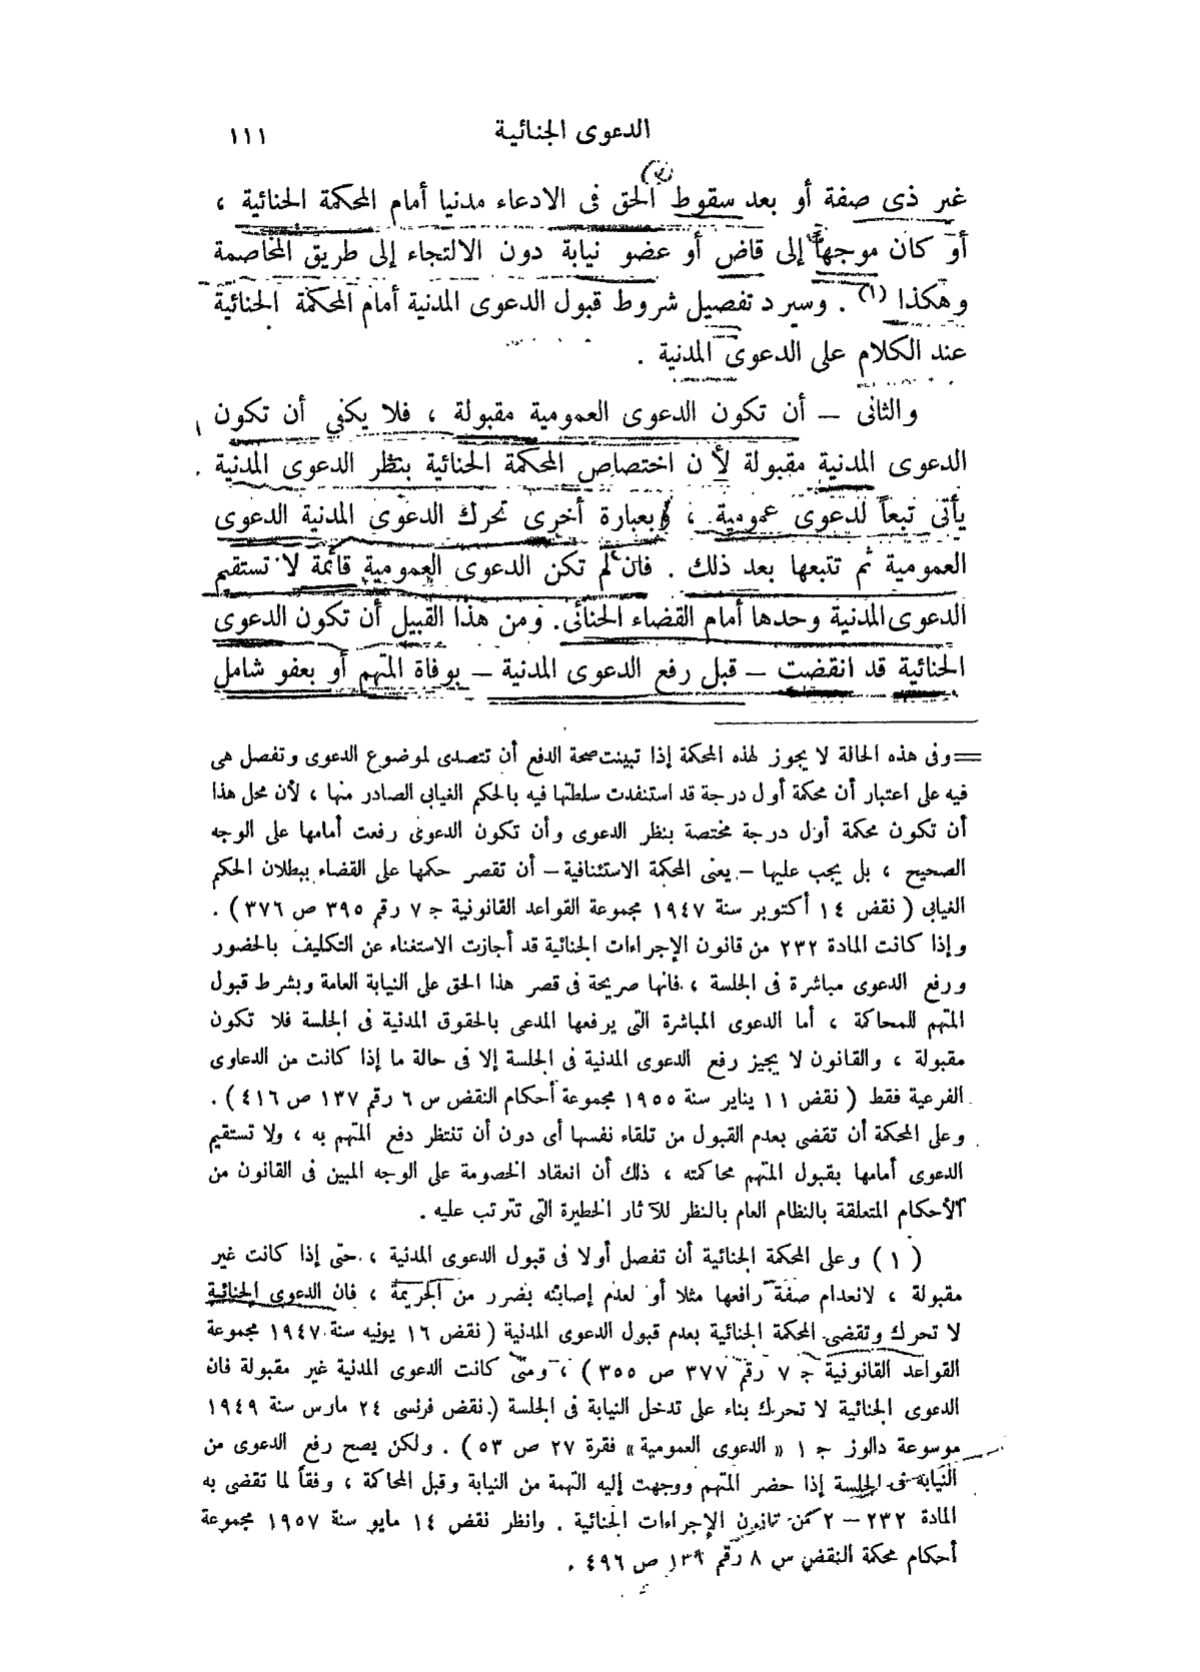 الدعوى الجنائية ١١١
غير ذى صفة أو بعد سقوط الحق فى الادعاء مدنيا أمام المحكمة الجنائية ،
أو كان موجهاً إلى قاض أو عضو نيابة دون الالتجاء إلى طريق المخاصمة
وهكذا (١) . وسيرد تفصيل شروط قبول الدعوى المدنية أمام المحكمة الجنائية
عند الكلام على الدعوى المدنية .
والثانى — أن تكون الدعوى العمومية مقبولة ، فلا يكفى أن تكون
الدعوى المدنية مقبولة لأن اختصاص المحكمة الجنائية بنظر الدعوى المدنية
يأتى تبعاً لدعوى عمومية ، وبعبارة أخرى تحرك الدعوى المدنية الدعوى
العمومية ثم تتبعها بعد ذلك . فان لم تكن الدعوى العمومية قائمة لا تستقيم
الدعوى المدنية وحدها أمام القضاء الجنائى . ومن هذا القبيل أن تكون الدعوى
الجنائية قد انقضت — قبل رفع الدعوى المدنية — بوفاة المتهم أو بعفو شامل
= وفى هذه الحالة لا يجوز لهذه المحكمة إذا تبينت صحة الدفع أن تتصدى لموضوع الدعوى وتفصل هى
فيه على اعتبار أن محكمة أول درجة قد استنفدت سلطتها فيه بالحكم الغيابى الصادر منها ، لأن محل هذا
أن تكون محكمة أول درجة مختصة بنظر الدعوى وأن تكون الدعوى رفعت أمامها على الوجه
الصحيح ، بل يجب عليها — يعنى المحكمة الاستئنافية — أن تقصر حكمها على القضاء ببطلان الحكم
الغيابى ( نقض ١٤ أكتوبر سنة ١٩٤٧ مجموعة القواعد القانونية ج ٧ رقم ٣٩٥ ص ٣٧٦ ) .
وإذا كانت المادة ٢٣٢ من قانون الإجراءات الجنائية قد أجازت الاستغناء عن التكليف بالحضور
ورفع الدعوى مباشرة فى الجلسة ، فانها صريحة فى قصر هذا الحق على النيابة العامة وبشرط قبول
المتهم للمحاكمة ، أما الدعوى المباشرة التى يرفعها المدعى بالحقوق المدنية فى الجلسة فلا تكون
مقبولة ، والقانون لا يجيز رفع الدعوى المدنية فى الجلسة إلا فى حالة ما إذا كانت من الدعاوى
الفرعية فقط ( نقض ١١ يناير سنة ١٩٥٥ مجموعة أحكام النقض س ٦ رقم ١٣٧ ص ٤١٦ ) .
وعلى المحكمة أن تقضى بعدم القبول من تلقاء نفسها أى دون أن تنتظر دفع المتهم به ، ولا تستقيم
الدعوى أمامها بقبول المتهم محاكمته ، ذلك أن انعقاد الخصومة على الوجه المبين فى القانون من
الأحكام المتعلقة بالنظام العام بالنظر للآثار الخطيرة التى تترتب عليه .
( ١ ) وعلى المحكمة الجنائية أن تفصل أولا فى قبول الدعوى المدنية ، حتى إذا كانت غير
مقبولة ، لانعدام صفة رافعها مثلا أو لعدم إصابته بضرر من الجريمة ، فان الدعوى الجنائية
لا تحرك وتقضى المحكمة الجنائية بعدم قبول الدعوى المدنية ( نقض ١٦ يونيه سنة ١٩٤٧ مجموعة
القواعد القانونية ج ٧ رقم ٣٧٧ ص ٣٥٥ ) ، ومتى كانت الدعوى المدنية غير مقبولة فان
الدعوى الجنائية لا تحرك بناء على تدخل النيابة فى الجلسة ( نقض فرنسى ٢٤ مارس سنة ١٩٤٩
موسوعة دالوز ج ١ « الدعوى العمومية » فقرة ٢٧ ص ٥٣ ) . ولكن يصح رفع الدعوى من
النيابة فى الجلسة إذا حضر المتهم ووجهت إليه التهمة من النيابة وقبل المحاكمة ، وفقاً لما تقضى به
المادة ٢٣٢ — ٢ من قانون الإجراءات الجنائية . وانظر نقض ١٤ مايو سنة ١٩٥٧ مجموعة
أحكام محكمة النقض س ٨ رقم ١٣٦ ص ٤٩٦ .